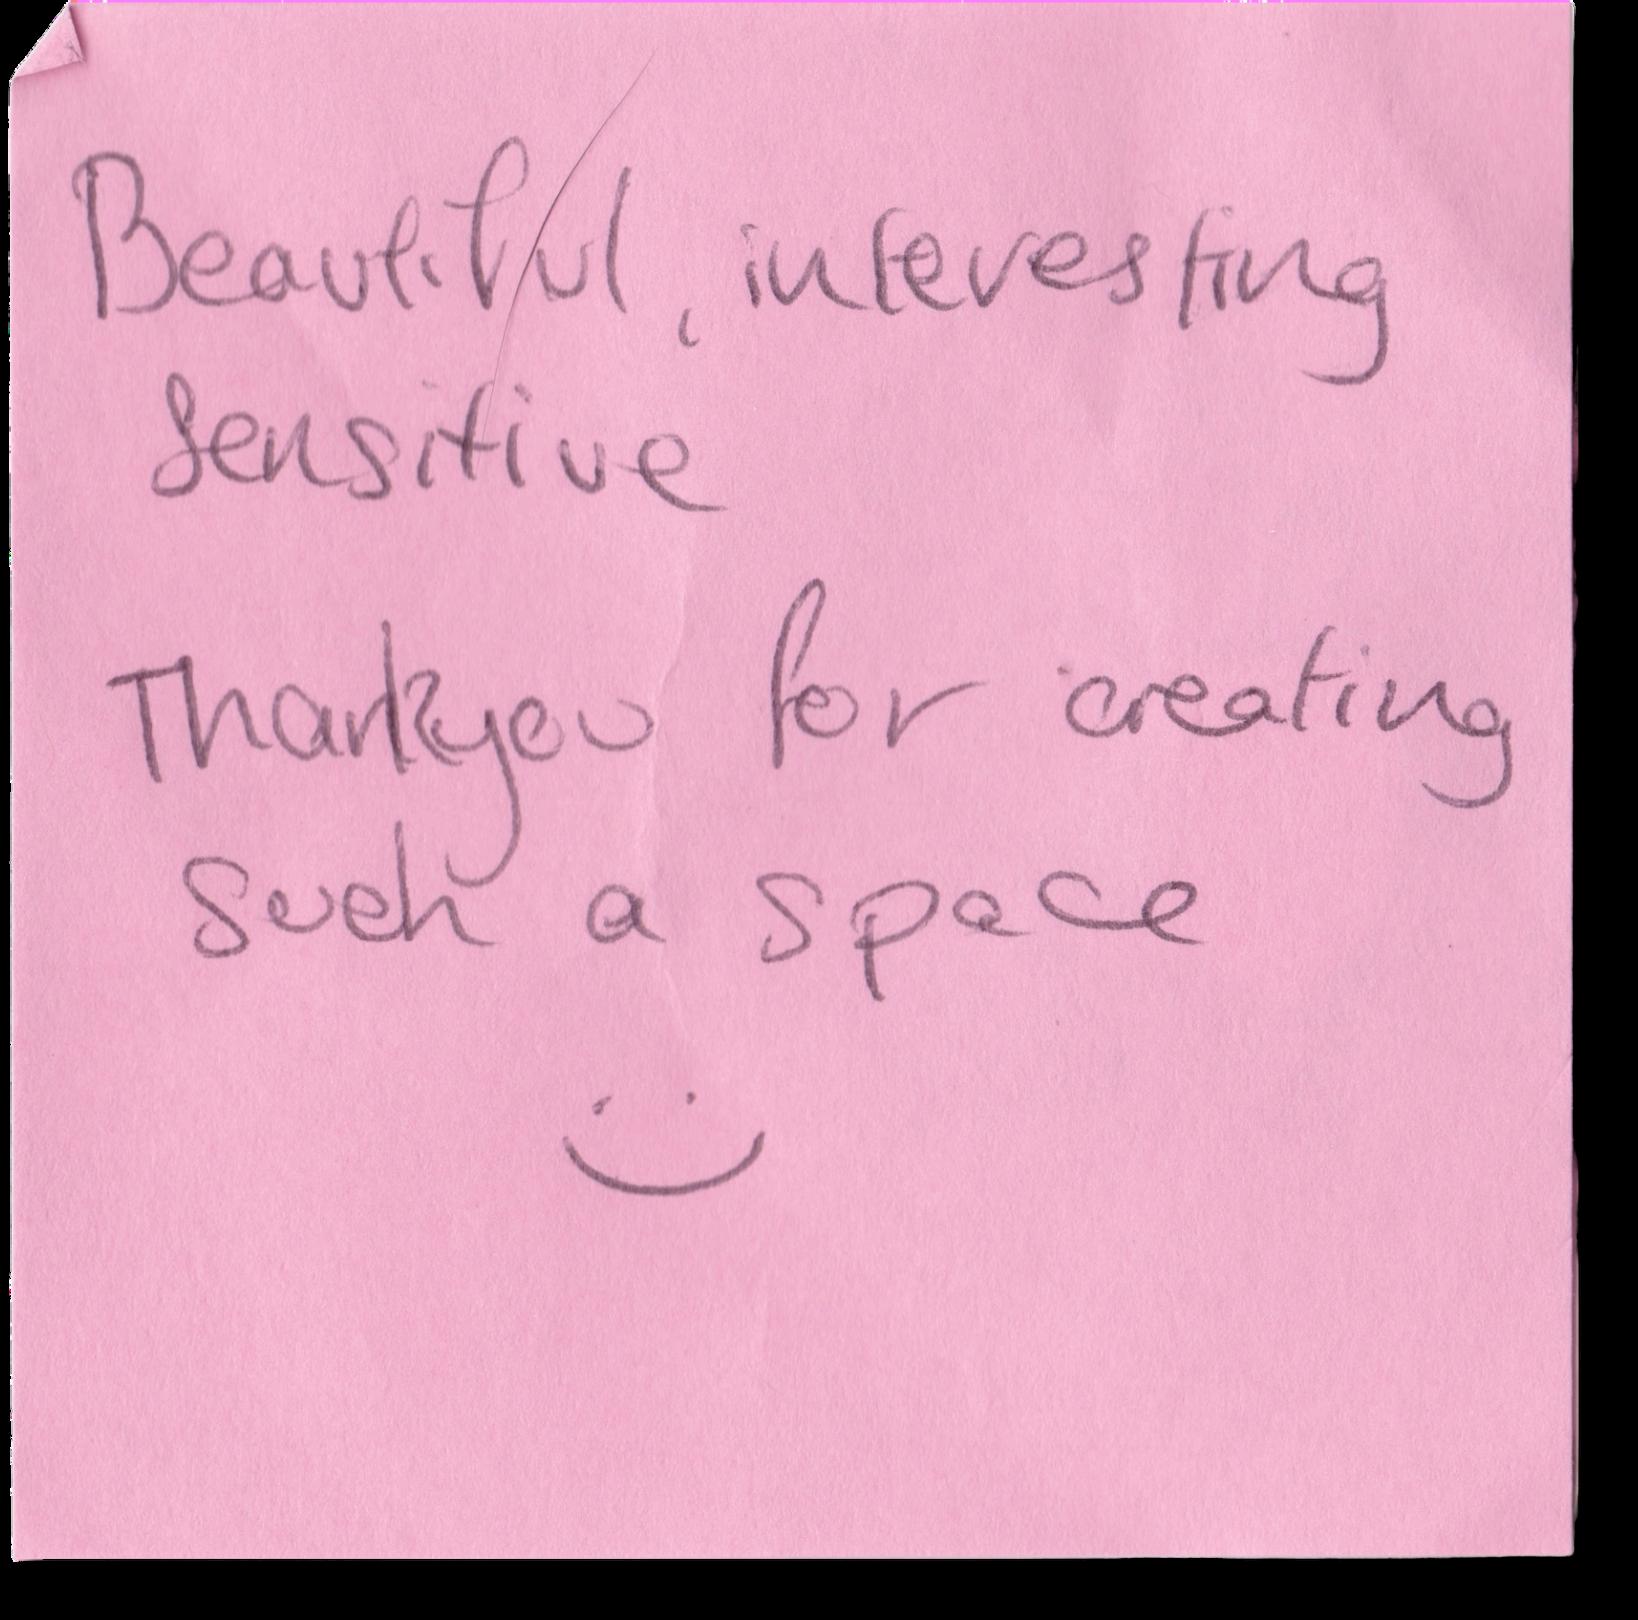 Beautiful, interesting
sensitive
Thankyou for creating
such a space